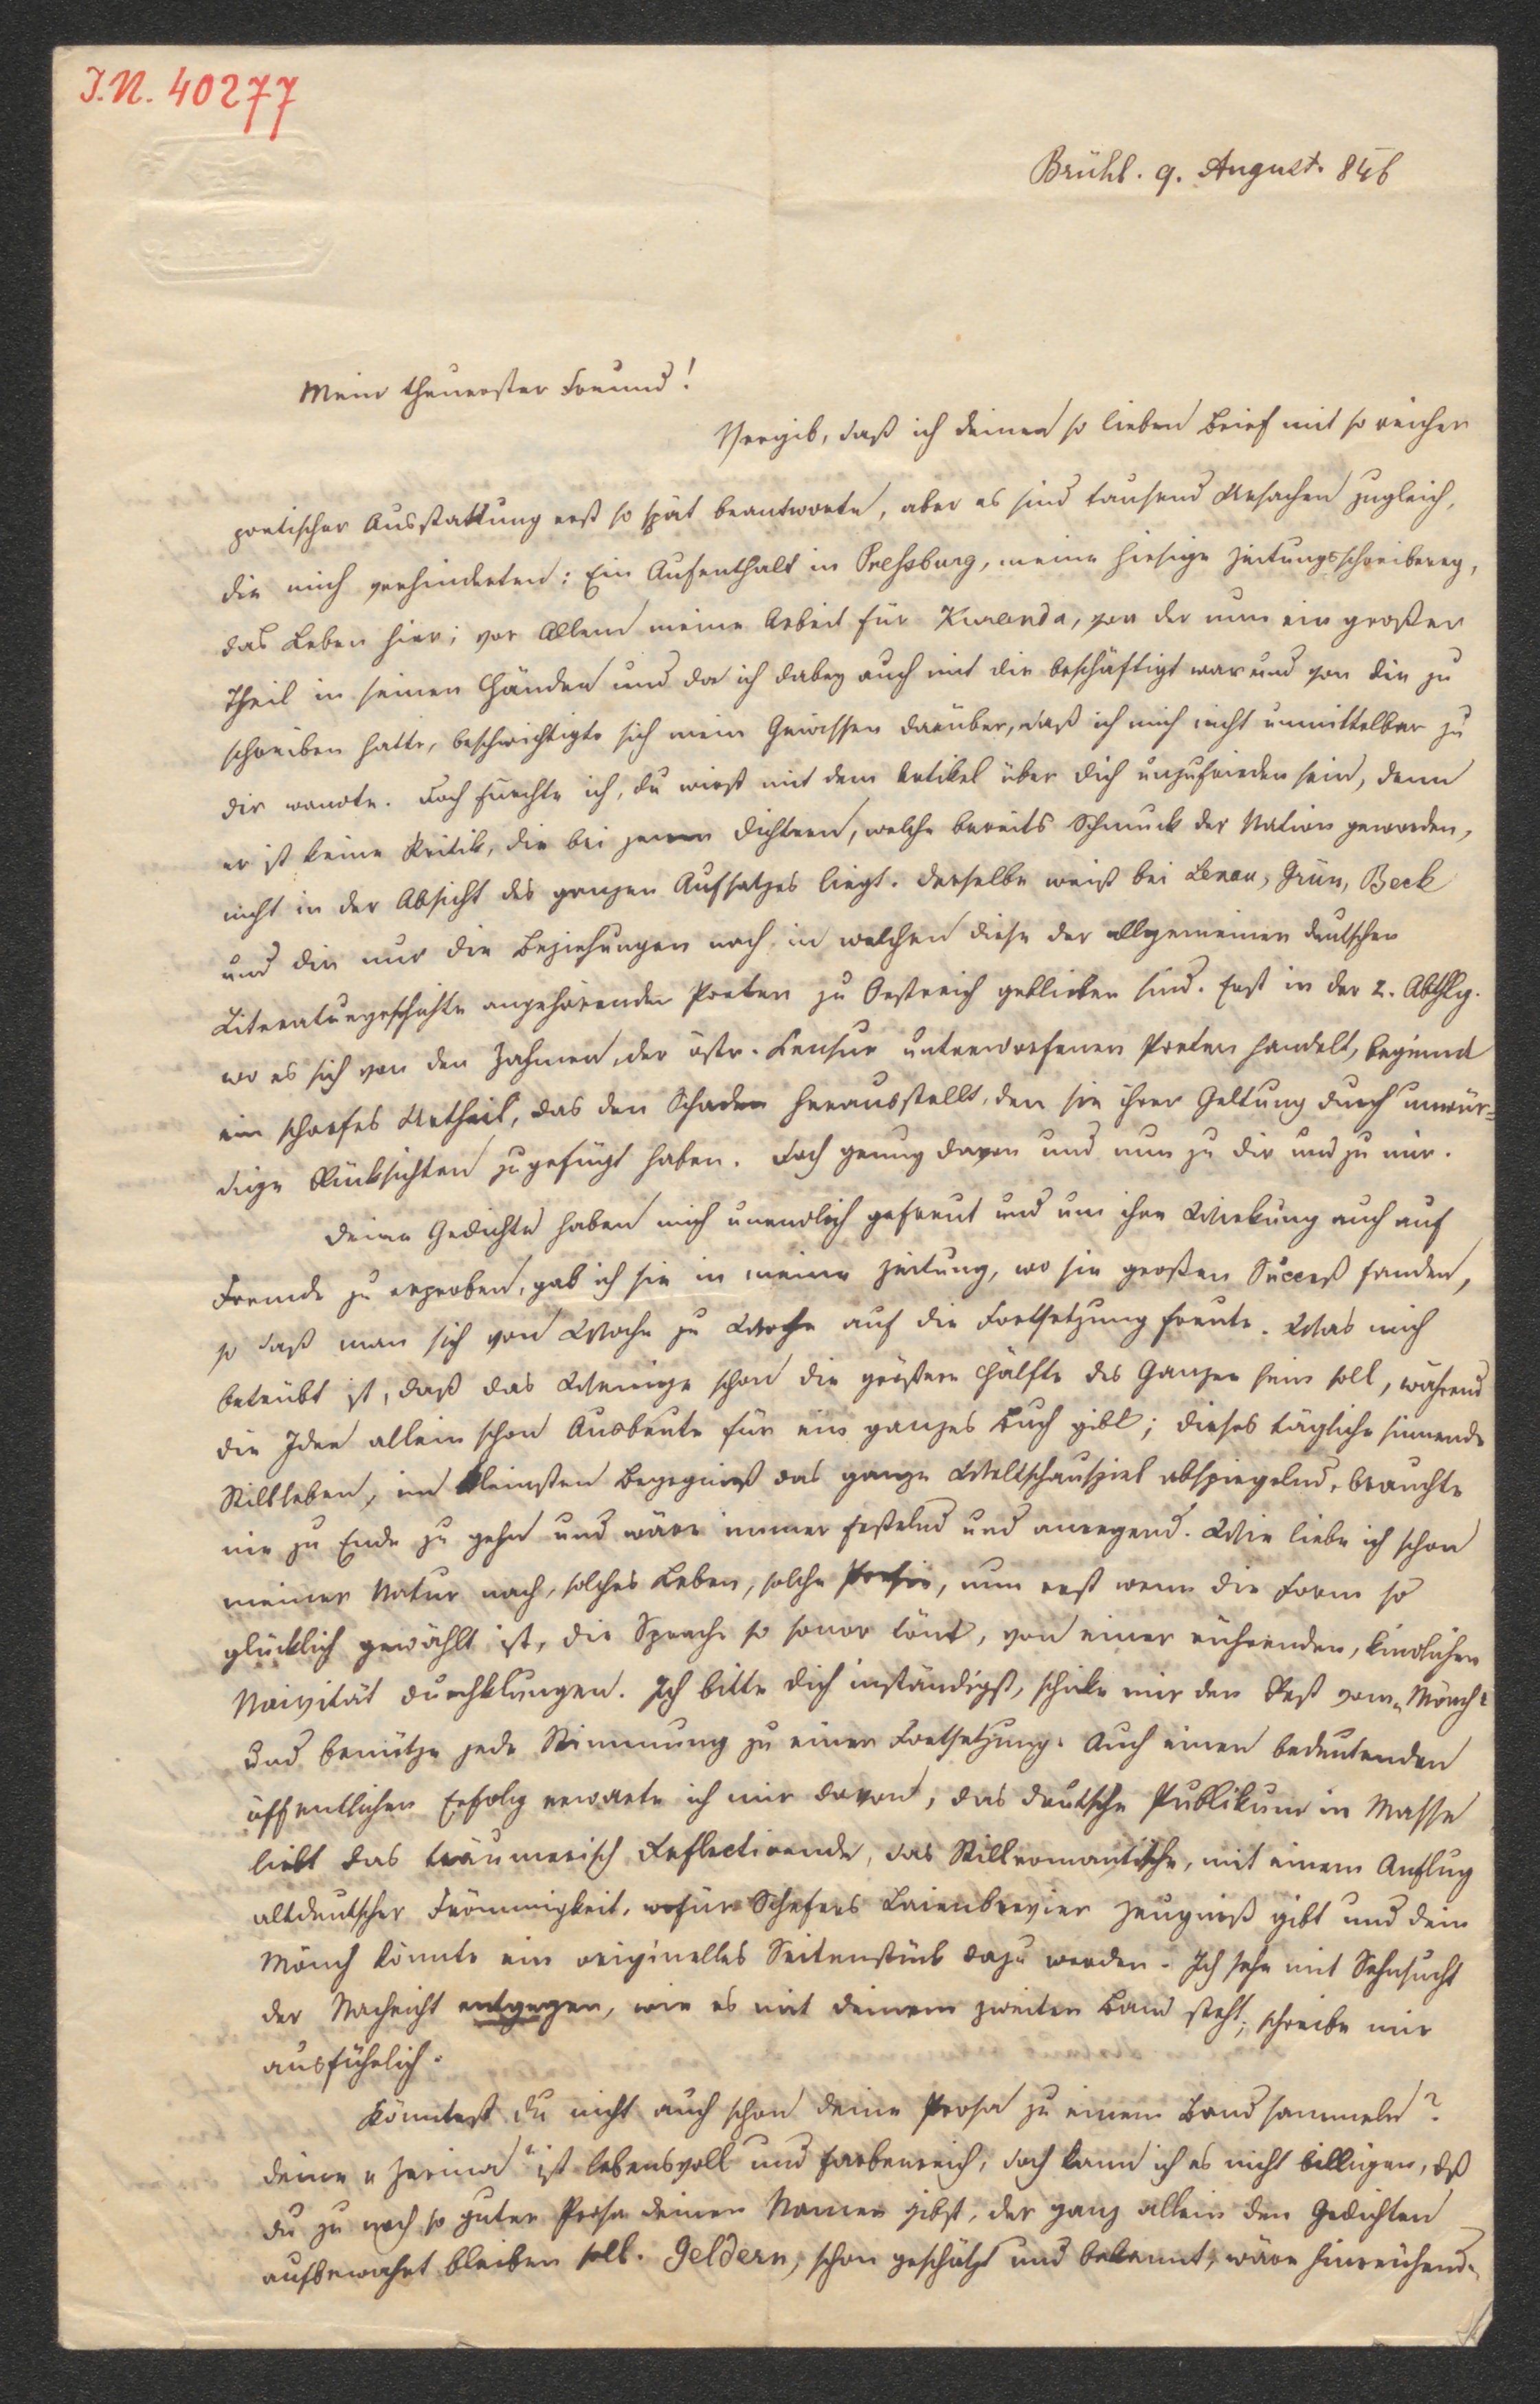 J.N. 40277
Brühl. 9. August. 846
Mein theuerster Freund!
Vergib, daß ich deinen so lieben Brief mit so reicher
poetischer Ausstattung erst so spät beantworte, aber es sind tausend Ursachen zugleich,
die mich verhinderten: Ein Aufenthalt in Pressburg, meine hiesige Zeitungsschreiberey,
das Leben hier; vor Allem meine Arbeit für Kuranda, von der nun ein großer
Theil in seinen Händen und da ich dabey auch mit dir beschäftigt war und von dir zu
schreiben hatte, beschwichtigte sich mein Gewissen darüber, daß ich mich nicht unmittelbar zu
dir wandte. Doch fürchte ich, du wirst mit dem Artikel über dich unzufrieden sein, denn
er ist keine Kritik, die bei jenen Dichtern, welche bereits Schmuck der Nation geworden,
nicht in der Absicht des ganzen Aufsatzes liegt. Derselbe weist bei Lenau, Grün, Beck
und dir nur die Beziehungen nach, in welchen diese der allgemeinen deutschen
Literaturgeschichte angehörenden Poeten zu Oestreich geblieben sind. Erst in der 2. Abthlg.
wo es sich von den zahmen, der östr. Censur unterworfenen Poeten handelt, beginnt
ein scharfes Urtheil, das den Schaden herausstellt, den sie ihrer Geltung durch unwür-
dige Rücksichten zugefügt haben. Doch genug davon und nun zu dir und zu mir.
Deine Gedichte haben mich unendlich gefreut und um ihre Wirkung auch auf
Fremde zu erproben, gab ich sie in meine Zeitung, wo sie großen Succeß fanden,
so daß man sich von Woche zu Woche auf die Fortsetzung freute. Was mich
betrübt ist, daß das Wenige schon die größere Hälfte des Ganzen sein soll, während
die Idee allein schon Ausbeute für ein ganzes Buch gibt; dieses tägliche sinnende
Stillleben, im kleinsten Begegniß das ganze Weltschauspiel abspiegelnd, brauchte
nie zu Ende zu gehn und wäre immer feßelnd und anregend. Wie liebe ich schon
meiner Natur nach, solches Leben, solche Poesie, nun erst wenn die Form so
glücklich gewählt ist, die Sprache so sonor tönt, von einer rührenden, kindlichen
Naivität durchklungen. Ich bitte dich inständigst, schicke mir den Rest vom „Mönch“
und benütze jede Stimmung zu einer Fortsetzung. Auch einen bedeutenden
öffentlichen Erfolg erwarte ich mir davon, das deutsche Publikum in Masse
liebt das träumerisch Reflectirende, das Stillromantische, mit einem Anflug
altdeutscher Frömmigkeit, wofür Schefers Laienbrevier Zeugniß gibt und dein
Mönch könnte ein originelles Seitenstück dazu werden. Ich sehe mit Sehnsucht
der Nachricht entgegen, wie es mit deinem zweiten Band steht; schreibe mir
ausführlich.
Könntest du nicht auch schon deine Prosa zu einem Band sammeln?
deine „Zerina“ ist lebensvoll und farbenreich, doch kann ich es nicht billigen, dß
du zu noch so guter Prosa deinen Namen gibst, der ganz allein den Gedichten
aufbewahrt bleiben soll. Geldern, schon geschätzt und bekannt, wäre hinreichend.